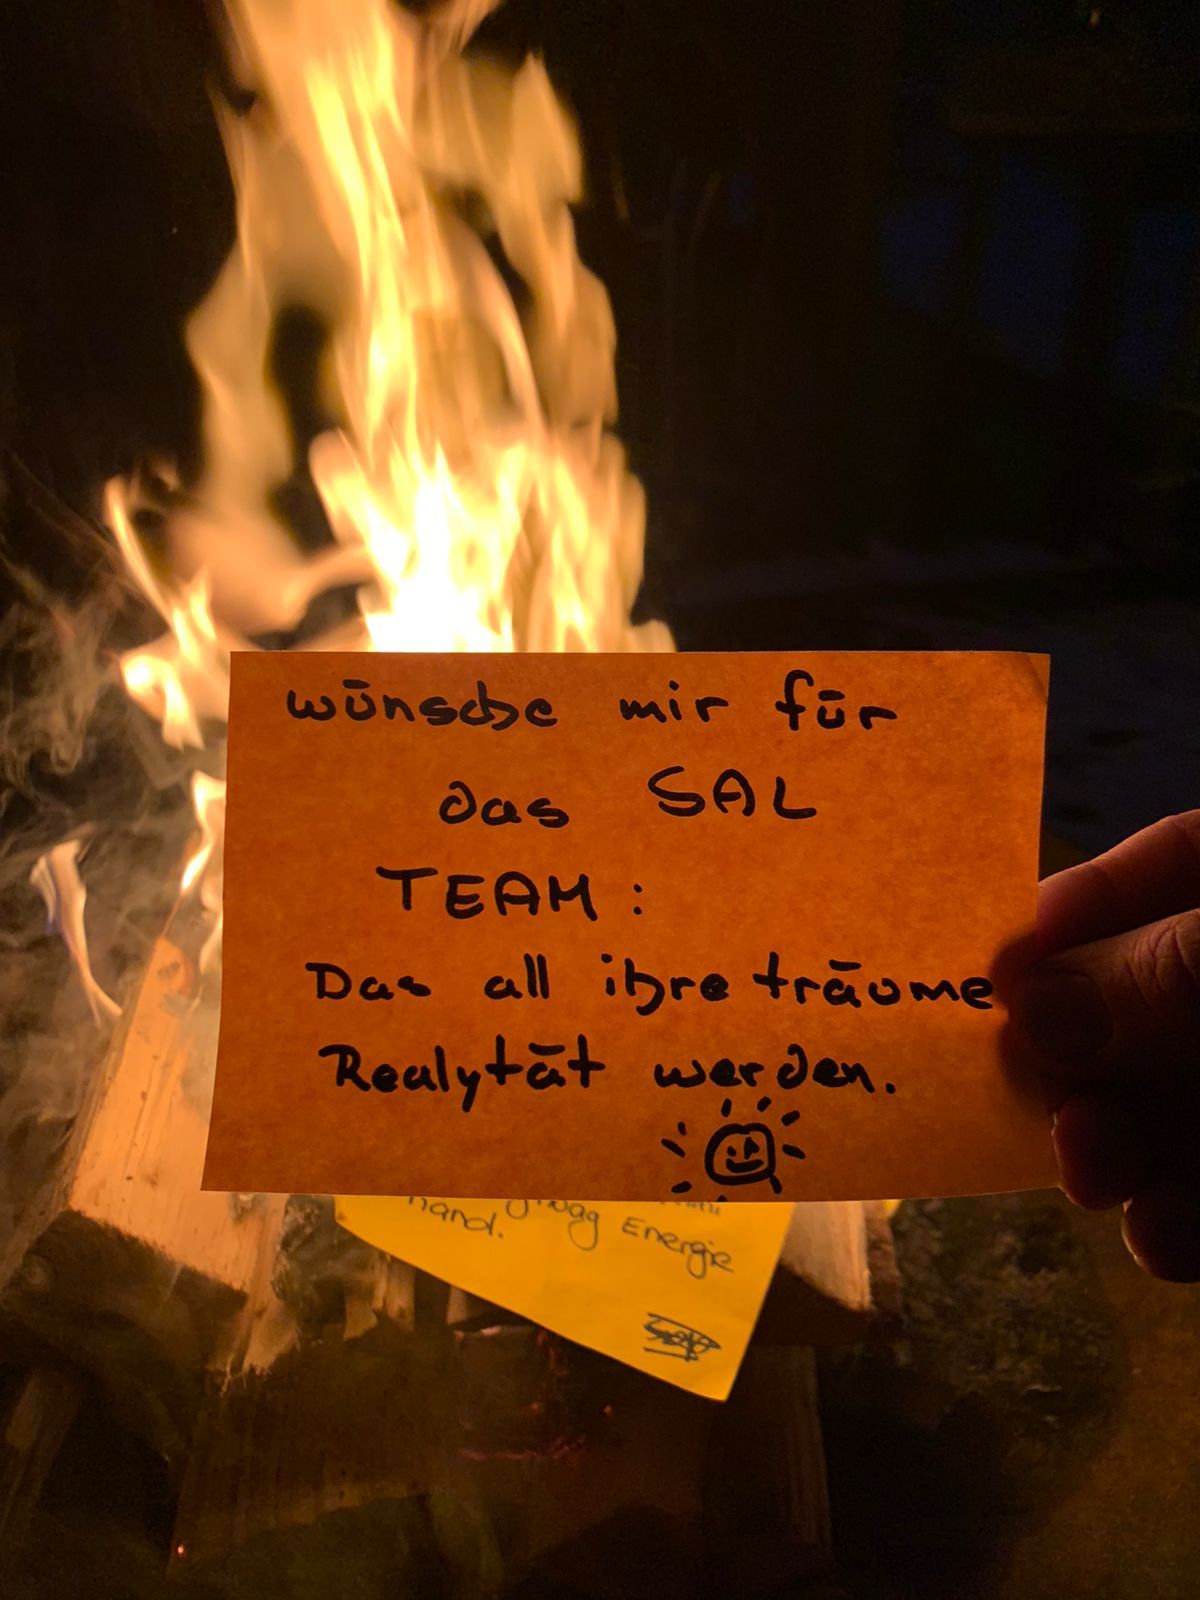 wünsche mir für
das SAL
TEAM :
Das all ihre träume
Realytät werden.
Energie
hand.